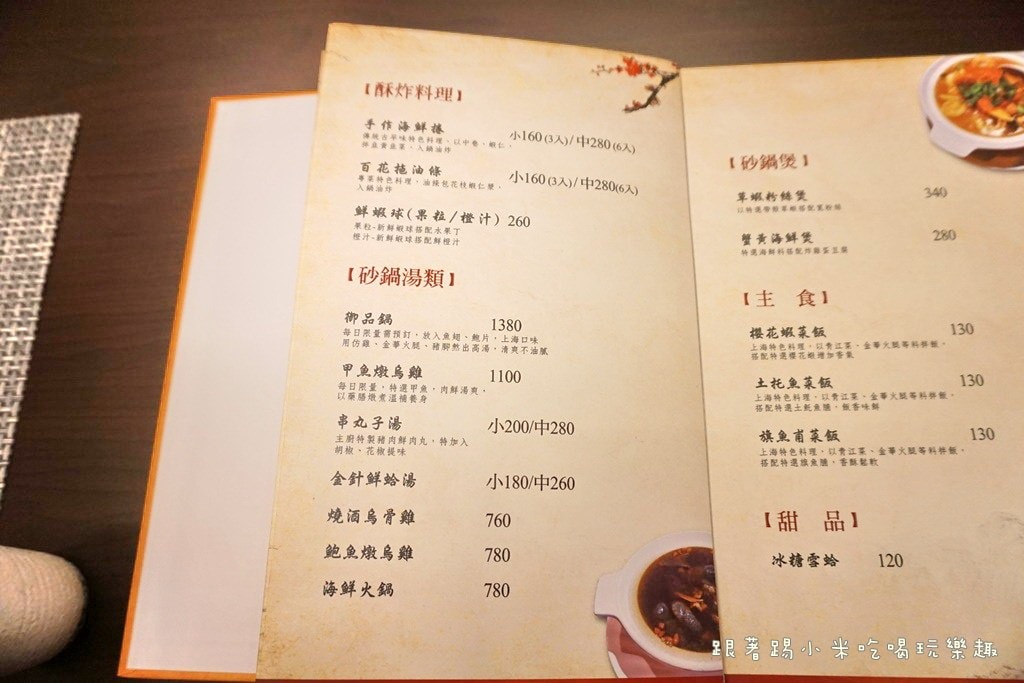 【酥炸料理】
手作海鮮捲 小160(3入)/中280(6入)
傳統古早味特色料理、以中卷、蝦仁、
拌韭黃韭菜、入鍋油炸
百花拖油條 小160(3入)/中280(6入)
粵菜特色料理、油條包花枝蝦仁漿、
入鍋油炸
鮮蝦球(果粒/橙汁) 260
果粒-新鮮蝦球搭配水果丁
橙汁-新鮮蝦球搭配鮮橙汁
【砂鍋湯類】
御品鍋 1380
每日限量需預訂，放入魚翅、鮑片，上海口味
用仿雞、金華火腿、豬腳熬出高湯，清爽不油膩
甲魚燉烏雞 1100
每日限量，特選甲魚，肉鮮湯爽，
以藥膳燉煮溫補養身
串丸子湯 小200/中280
主廚特製豬肉鮮肉丸，特加入
胡椒、花椒提味
金針鮮蛤湯 小180/中260
燒酒烏骨雞 760
鮑魚燉烏雞 780
海鮮火鍋 780
【砂鍋煲】
草蝦粉絲煲 340
以特選帶殼草蝦搭配寬粉絲
蟹黃海鮮煲 280
特選海鮮料搭配炸雞蛋豆腐
【主 食】
櫻花蝦菜飯 130
上海特色料理，以青江菜、金華火腿等料拌飯，
搭配特選櫻花蝦增加香氣
土托魚菜飯 130
上海特色料理，以青江菜、金華火腿等料拌飯，
搭配特選土魠魚腩，飯香味鮮
旗魚甫菜飯 130
上海特色料理，以青江菜、金華火腿等料拌飯，
搭配特選旗魚腩，香酥鬆軟
【甜 品】
冰糖雪蛤 120
跟著踢小米吃喝玩樂趣